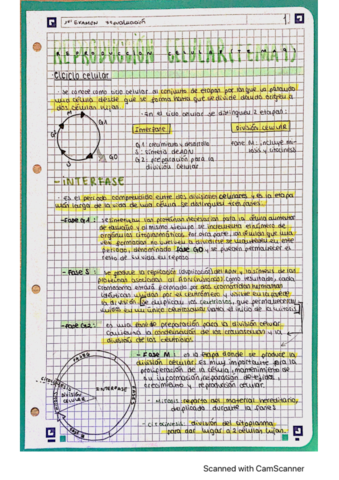 1er EXAMEN
1
REPRODUCCIÓN CELULAR (TEMA 9)
Ciclo celular
- Se conoce como ciclo celular al conjunto de etapas por las que va pasando
una célula desde que se forma hasta que se divide dando origen a
dos células hijas.
- En el ciclo celular se distinguen 2 etapas:
M
G1
Interfase
División celular
G1: crecimiento y desarrollo
Fase M: incluye mi-
S: síntesis de ADN
tosis y citocinesis
G0
G2: preparación para la
S
división celular
- INTERFASE
- Es el periodo comprendido entre dos divisiones celulares y es la etapa
más larga de la vida de una célula. Se distinguen tres fases:
- Fase G1: se sintetizan las proteínas necesarias para la célula aumente
de tamaño y al mismo tiempo se incrementa el número de
orgánulos citoplasmáticos. Por otra parte, las células que una
vez formadas no vuelven a dividirse se quedan en este
periodo, denominado Fase G0 y se pueden permanecer el
resto de su vida en reposo
- Fase S: se produce la replicación (duplicación) del ADN y la síntesis de las
proteínas asociadas al Como resultado, cada
cromosoma estará formado por dos cromátidas hermanas
idénticas unidas por el centrómero
la división. Se duplican los centriolos, que permanecerán
unidos en un único centrosoma hasta el inicio de la mitosis
- Fase G2: es una fase de preparación para la división celular.
Comienza la condensación de los cromosomas y la
división de los centriolos.
- Fase M: es la etapa donde se produce la
división celular. Es muy importante para la
proliferación de la célula, mantenimiento de
su información, reparación de tejidos,
crecimiento y reproducción celular.
INTERFASE
DIVISIÓN
CELULAR
- Mitosis: reparto del material hereditario,
duplicado durante la fase S
- Citocinesis: división del citoplasma
para dar lugar a 2 células hijas.
Scanned with CamScanner